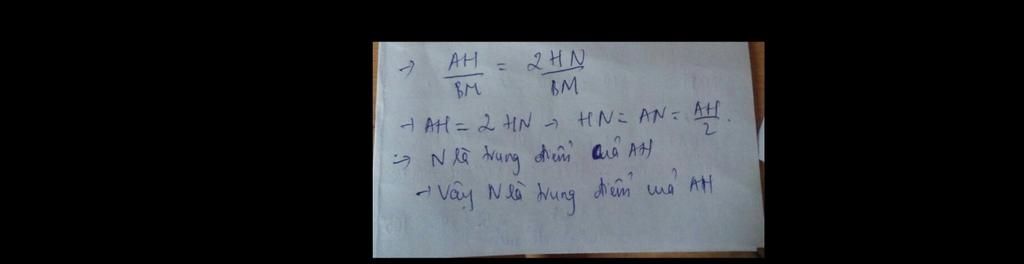 → AH/BM = 2HN/BM
→ AH = 2 HN → HN = AN = AH/2.
=> N là trung điểm của AH
→ Vậy N là trung điểm của AH